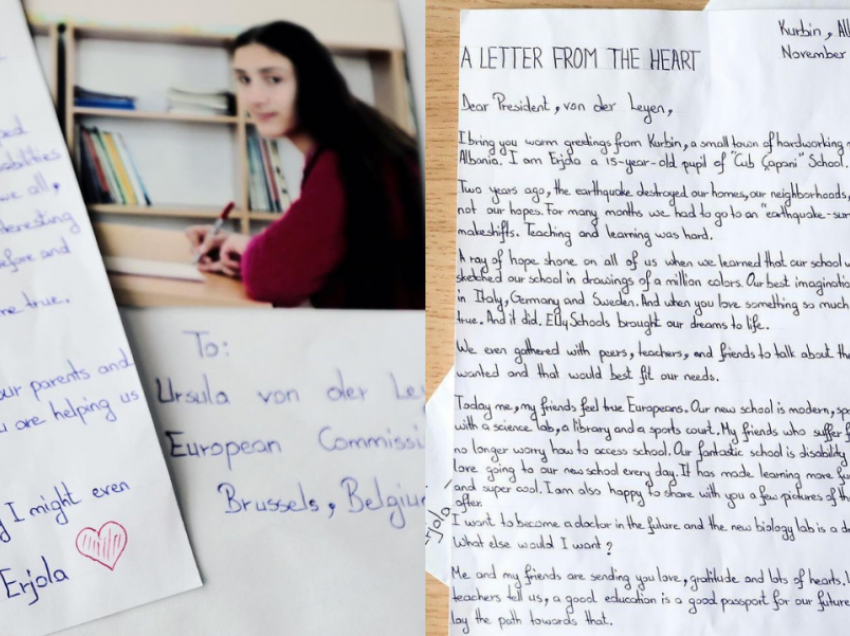 ped
abilities
we all,
teresting
efore and
me true.
our parents and
u are helping us
y I might even
Erjola
To:
Ursula von der Le
European Commissi
Brussels, Belgiu
Kurbin, Al
November
A LETTER FROM THE HEART
Dear President, von der Leyen,
I bring you warm greetings from Kurbin, a small town of hardworking
Albania. I am Erjola a 15-year-old pupil of "Gub Çapani" School.
Two years ago, the earthquake destroyed our homes, our neighborhoods,
not our hopes. For many months we had to go to an "earthquake-sur
makeshifts. Teaching and learning was hard.
A ray of hope shone on all of us when we learned that our school w
sketched our school in drawings of a million colors. Our best imaginatio
in Italy, Germany and Sweden. And when you love something so much
true. And it did. EU4Schools brought our dreams to life.
We even gathered with peers, teachers, and friends to talk about the
wanted and that would best fit our needs.
Today me, my friends feel true Europeans. Our new school is modern, spa
with a science lab, a library and a sports court. My friends who suffer f
no longer worry how to access school. Our fantastic school is disability
love going to our new school every day. It has made learning more fu
and super cool. I am also happy to share with you a few pictures of th
after.
I want to become a doctor in the future and the new biology lab is a dr
What else would I want?
Me and my friends are sending you love, gratitude and lots of hearts.
teachers tell us, a good education is a good passport for our future
lay the path towards that.
Erjola